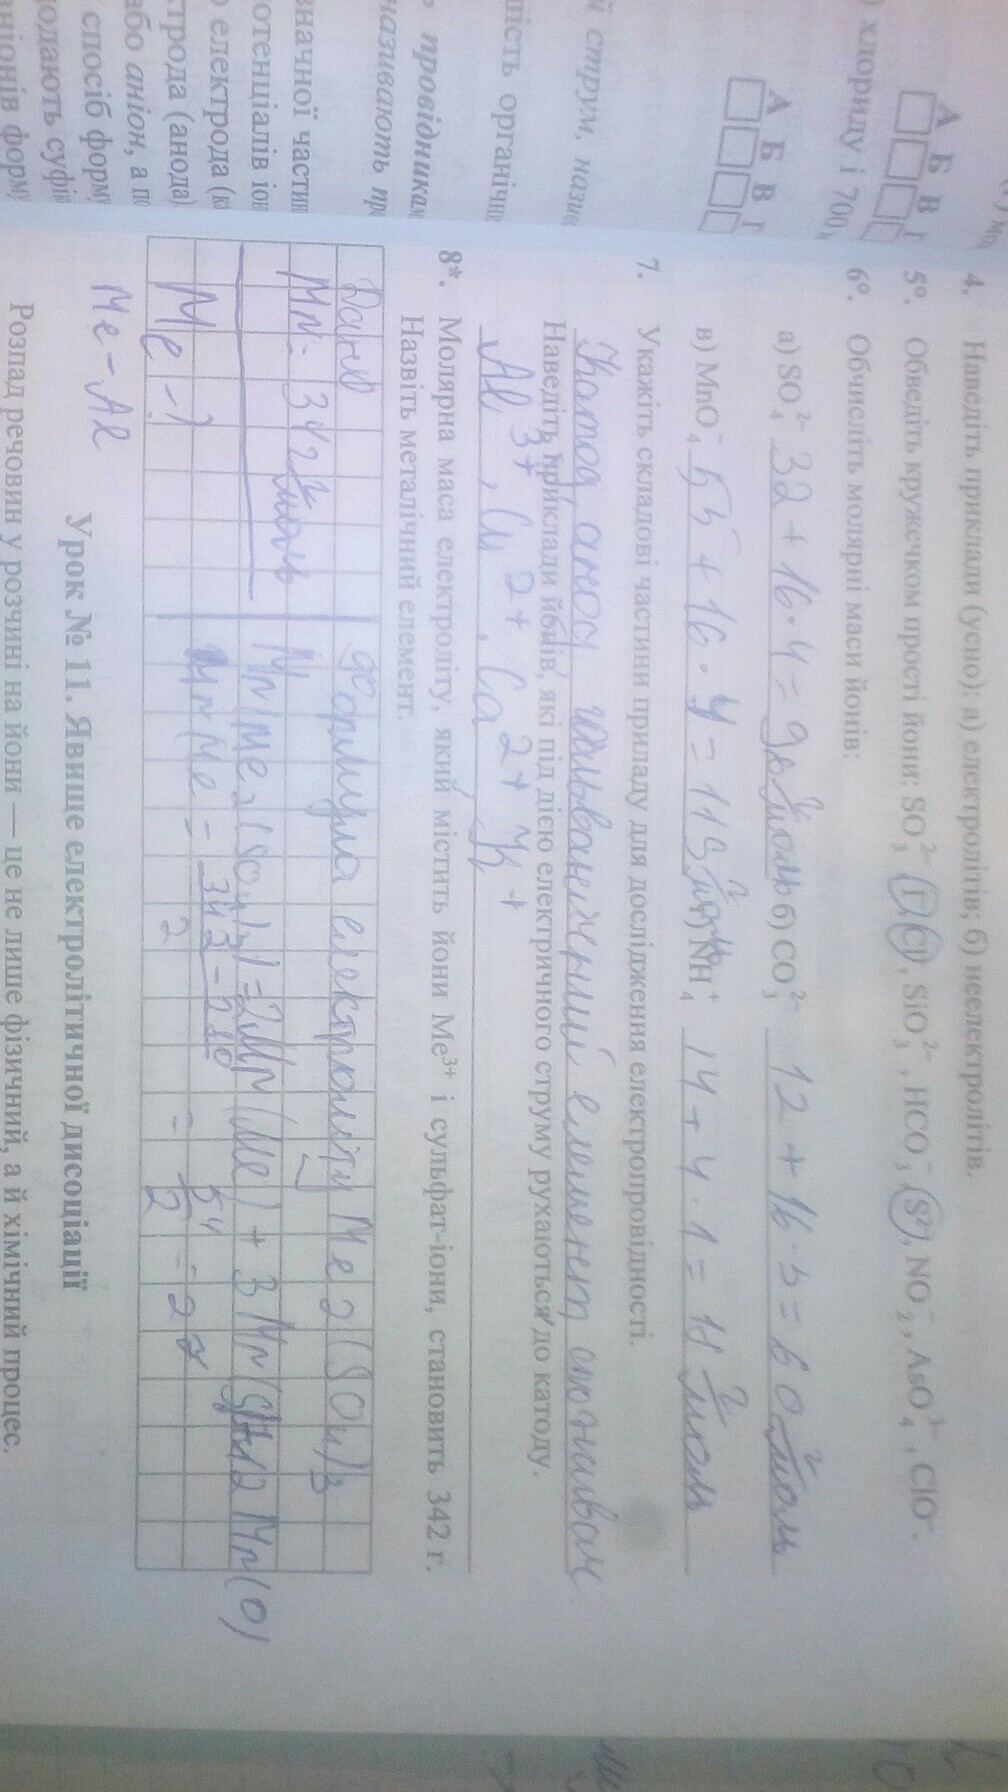 4. Наведіть приклади (усно): а) електролітів; б) неелектролітів.
5°. Обведіть кружечком прості йони: SO₃²⁻, I⁻, Cl⁻, SiO₃²⁻, HCO₃⁻, S²⁻, NO₂⁻, AsO₄³⁻, ClO⁻.
6°. Обчисліть молярні маси йонів:
а) SO₄²⁻ 32 + 16 · 4 = 96 г/моль б) CO₃²⁻ 12 + 16 · 3 = 60 г/моль
в) MnO₄⁻ 55 + 16 · 4 = 119 г/моль г) NH₄⁺ 14 + 4 · 1 = 18 г/моль
7. Укажіть складові частини приладу для дослідження електропровідності.
Катод, анод, гальванічний елемент,
Наведіть приклади йонів, які під дією електричного струму рухаються до катоду.
Al³⁺, Cu²⁺, Ca²⁺, K⁺
8*. Молярна маса електроліту, який містить йони Me³⁺ і сульфат-іони, становить 342 г.
Назвіть металічний елемент.
Дано | формула електроліту Me₂(SO₄)₃
Mr = 342 г/моль | Mr(Me₂(SO₄)₃) = 2Mr(Me) + 3Mr(S) + 12Mr(O)
Me - ? | Mr(Me) = 342 - 288 / 2 = 54 / 2 = 27
Me - Al
Урок № 11. Явище електролітичної дисоціації
Розпад речовин у розчині на йони — це не лише фізичний, а й хімічний процес.
А Б В Г
) хлориду і 700
А Б В Г
й струм, назив
ність органічн
провідникам
називають пр
значної частин
отенціалів іон
електрода (к
трода (анода)
або аніон, а по
спосіб форму
одають суфік
ніонів форму